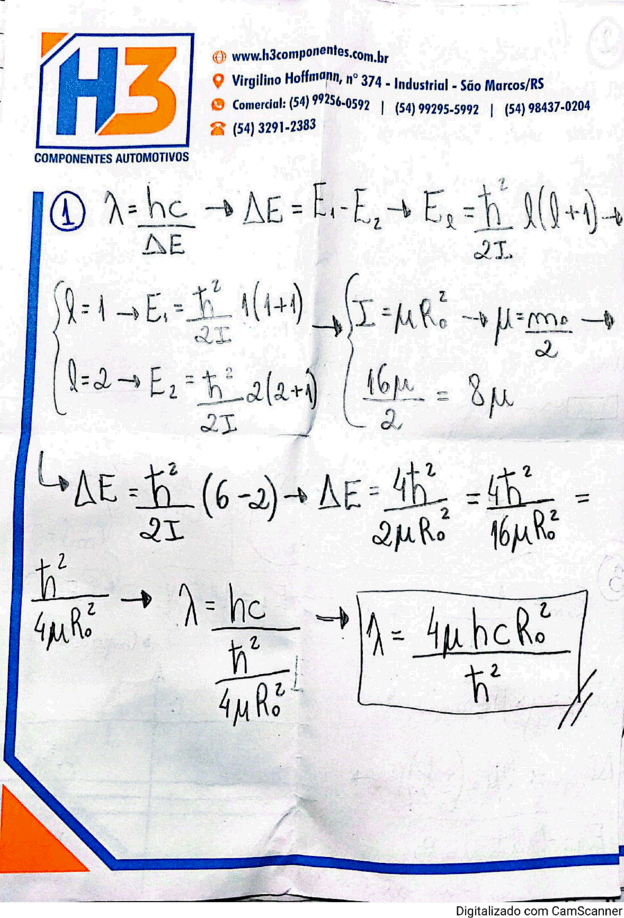 H3
COMPONENTES AUTOMOTIVOS
www.h3componentes.com.br
Virgilino Hoffmann, nº 374 - Industrial - São Marcos/RS
Comercial: (54) 99256-0592 | (54) 99295-5992 | (54) 98437-0204
(54) 3291-2383
① λ = hc/ΔE → ΔE = E₁ - E₂ → Eℓ = ħ²/2I ℓ(ℓ+1) →
{ ℓ = 1 → E₁ = ħ²/2I 1(1+1)
ℓ = 2 → E₂ = ħ²/2I 2(2+1)
→ { I = μR₀² → μ = m₀/2 →
16μ/2 = 8μ
↳ ΔE = ħ²/2I (6-2) → ΔE = 4ħ²/2μR₀² = 4ħ²/16μR₀² =
ħ²/4μR₀² → λ = hc/(ħ²/4μR₀²) → λ = 4μhcR₀²/ħ² //
Digitalizado com CamScanner